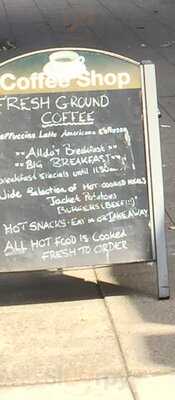 Coffee Shop
FRESH GROUND
COFFEE
Cappuccino Latte Americano Espresso
** All day Breakfast **
** BIG BREAKFAST **
Breakfast Specials until 11:30
Wide Selection of HOT COOKED MEALS
Jacket Potatoes
BURGERS (BEEF!!)
HOT SNACKS - EAT IN OR TAKEAWAY
ALL HOT FOOD is Cooked
FRESH TO ORDER